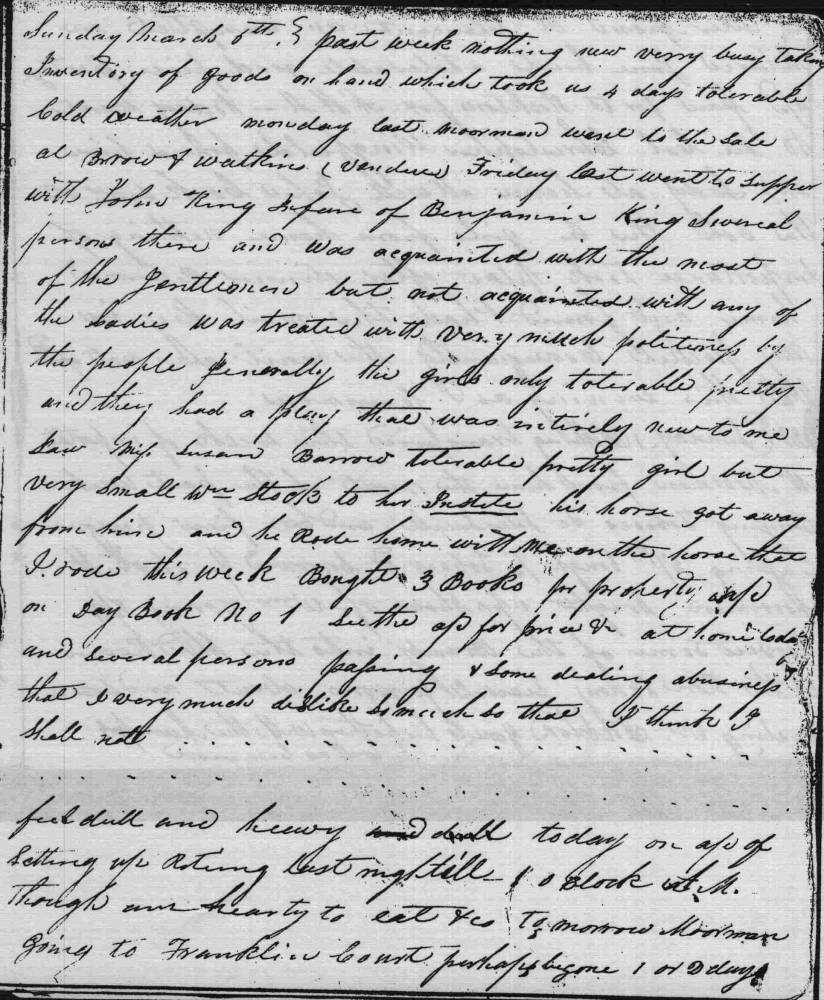 Sunday March 6th. & past week nothing new verry busy taking
Inventory of goods on hand which took us 4 days tolerable
Cold weather monday last moorman went to the sale
at Brrow & watkins (vendue) Friday last went to supper
with John King Infare of Benjamin King Several
persons there and was acquainted with the most
of the Gentlemen but not acquainted with any of
the Ladies was treated with very much politeness by
the people generally the girls only tolerable pretty
and they had a play that was intirely new to me
Saw Miss Susan Barrow tolerable pretty girl but
very small Wm Stock to her his horse got away
from him and he Rode home with me on the horse that
I rode this week Bought 3 Books for property
on Day Book No 1 See the a/c for price &c at home today
and several persons passing & some dealing abusiness
that I very much dislike so much so that I think I
Shall not . . . . . . . . . . . .
. . . . . . . . . . . . . .
feel dull and heavy and dull today on a/c of
Setting up last night till 1 o Clock A.M.
Though am hearty to eat &c Tomorrow Moorman
going to Franklin Court perhaps begone 1 or 2 days